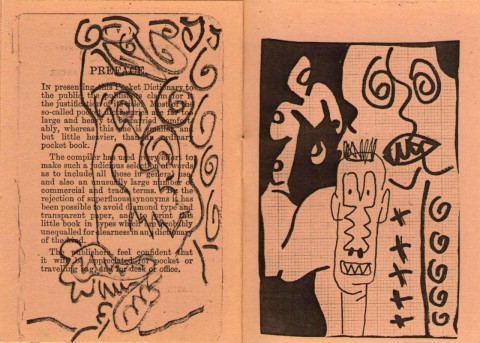 PREFACE.
In presenting this Pocket Dictionary to
the public the publishers claim for it
the justification of its title. Most of the
so-called pocket dictionaries are far too
large and heavy to be carried comfort-
ably, whereas this one is smaller, and
but little heavier, than an ordinary
pocket book.
The compiler has used every effort to
make such a judicious selection of words
as to include all those in general use
and also an unusually large number of
commercial and trade terms. By the
rejection of superfluous synonyms it has
been possible to avoid diamond type and
transparent paper, and to print this
little book in types which are probably
unequalled for clearness in any dictionary
of the kind.
The publishers feel confident that
it will be appreciated for pocket or
travelling bag, and for desk or office.